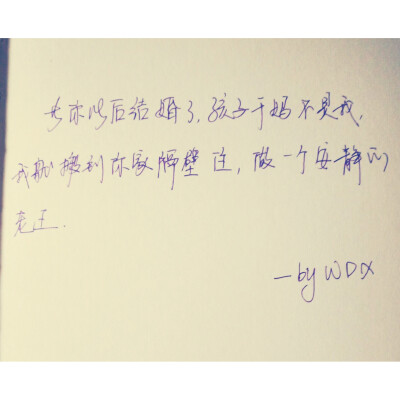 若你以后结婚了,孩子干妈不是我,
我就搬到你家隔壁住,做一个安静的
老王.
—by WDX